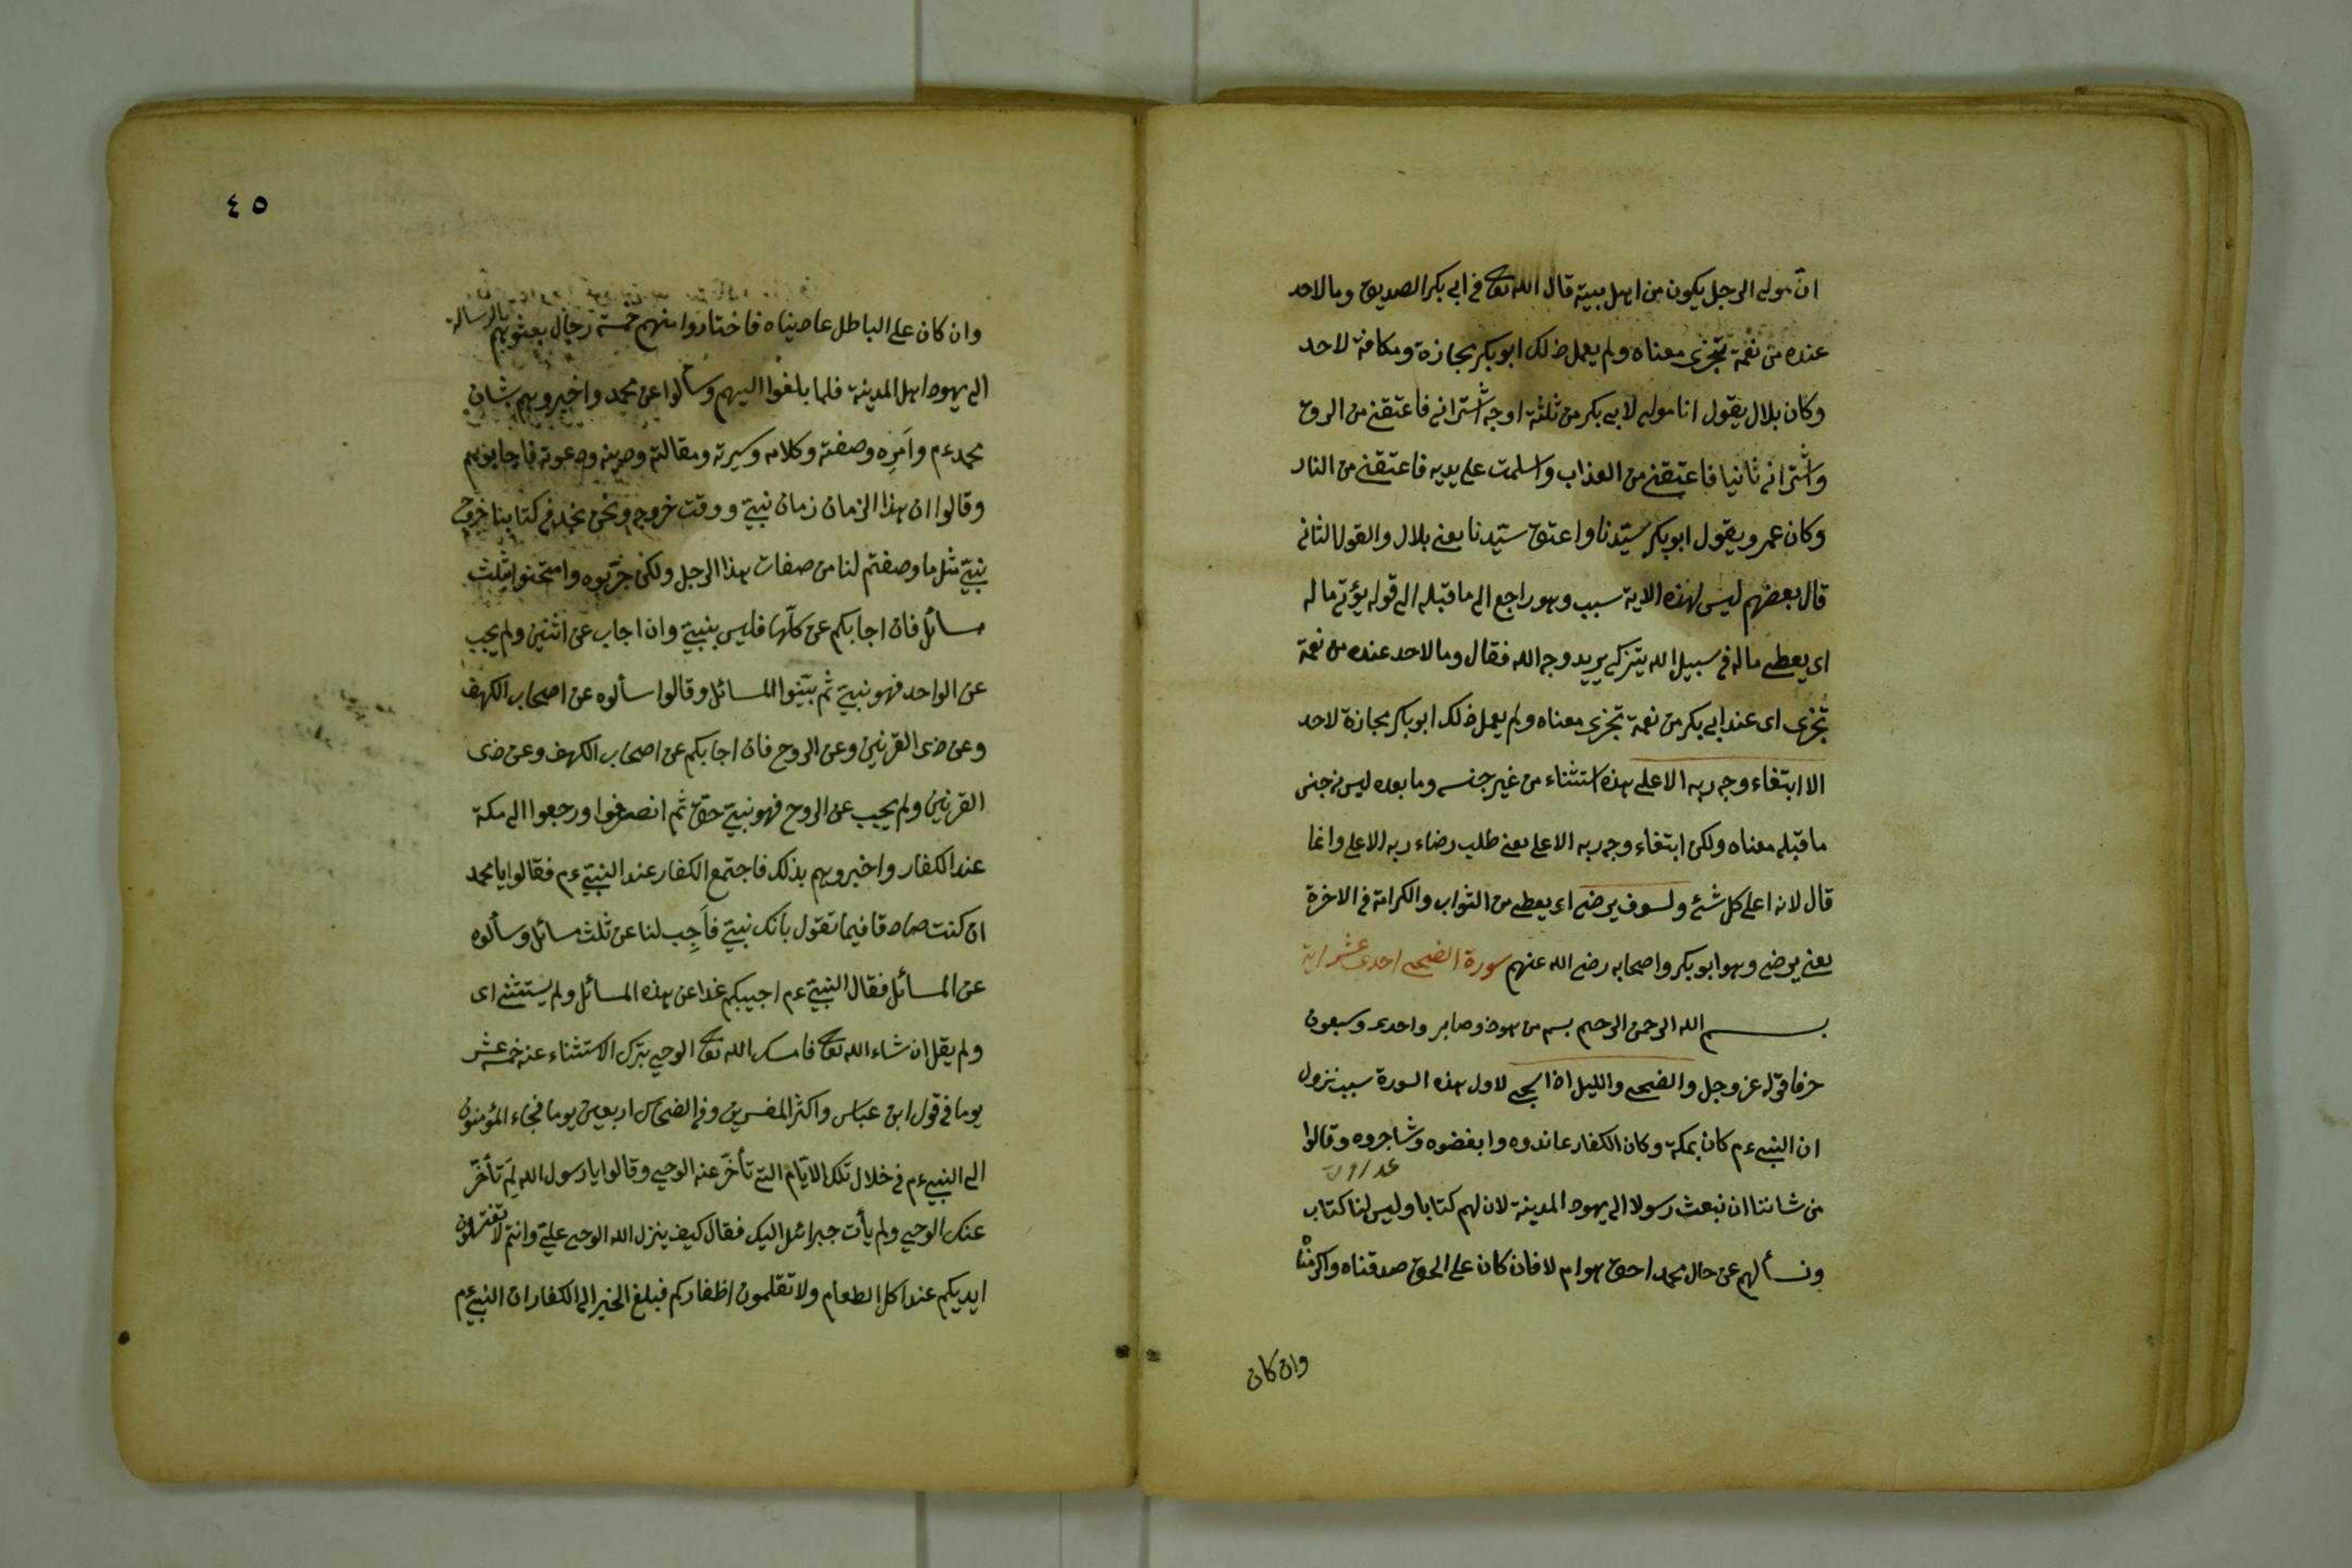 ان مولى الرجل يكون من اهل بيته قال الله تعالى في ابي بكر الصديق وما لاحد
عنده من نعمة تجزى معناه ولم يعمل ذلك ابو بكر مجازة ومكافة لاحد
وكان بلال يقول انا مولى لابي بكر من ثلثة اوجه اشتراني فاعتقني من الرق
واشتراني ثانيا فاعتقني من العذاب واسلمت على يديه فاعتقني من النار
وكان عمر ويقول ابو بكر سيّدنا واعتق سيّدنا يعني بلال والقول الثاني
قال بعضهم ليس لهذه الاية سبب وهو راجع الى ما قبله الى قوله يؤتي ماله
اى يعطى ماله في سبيل الله يتزكى يريد وجه الله فقال وما لاحد عنده من نعمة
تجزى اى عند ابي بكر من نعمة تجزى معناه ولم يعمل ذلك ابو بكر مجازة لاحد
الا ابتغاء وجه ربه الاعلى هذه استثناء من غير جنسه وما بعده ليس من جنس
ما قبله معناه ولكن ابتغاء وجه ربه الاعلى يعني طلب رضاء ربه الاعلى وانما
قال لانه اعلى كل شئ ولسوف يرضى اى يعطى من الثواب والكرامة في الاخرة
يعني يرضى وهو ابو بكر واصحابه رضى الله عنهم سورة الضحى احدى عشر اية
بسم الله الرحمن الرحيم بسم من هود وصابر واحدى وسبعون
حرفا قوله عز وجل والضحى والليل اذا سجى لاول هذه السورة سبب نزول
ان النبي ءم كان بمكة وكان الكفار عاندوه وابغضوه وشاجروه وقالوا
من شاننا ان نبعث رسولا الى يهود المدينة لان لهم كتابا وليس لنا كتاب
ونسألهم عن حال محمد احق هو ام لا فان كان على الحق صدقناه واكرمنا
وان كان
٤٥
وان كان على الباطل عاديناه فاختاروا منهم خمسة رجال بعثوهم بالرسالة
الى يهود اهل المدينة فلما بلغوا اليهم وسألوا عن محمد واخبروهم بشان
محمد ءم وامره وصفته وكلامه وسيرته ومقالته ودينه ودعوته فاجابوهم
وقالوا ان هذا الزمان زمان نبيّ ووقت خروجه ونحن نجد في كتابنا خروج
نبيّ مثل ما وصفتم لنا من صفات هذا الرجل ولكن جرّبوه وامتحنوا بثلث
مسائل فان اجابكم عن كلّها فليس بنبيّ وان اجاب عن اثنين ولم يجب
عن الواحد فهو نبيّ ثم بيّنوا المسائل وقالوا سألوه عن اصحاب الكهف
وعن ذى القرنين وعن الروح فان اجابكم عن اصحاب الكهف وعن ذى
القرنين ولم يجب عن الروح فهو نبيّ حق ثم انصرفوا ورجعوا الى مكة
عند الكفار واخبروهم بذلك فاجتمع الكفار عند النبيّ ءم فقالوا يا محمد
ان كنت صادقا فيما تقول بانك نبيّ فاَجِب لنا عن ثلث مسائل وسألوه
عن المسائل فقال النبيّ ءم اجيبكم غدا عن هذه المسائل ولم يستثنى اى
ولم يقل ان شاء الله تعالى فامسك الله تعالى الوحي بترك الاستثناء عنه خمسة عشر
يوما في قول ابن عباس واكثر المفسرين وفي الضحاك اربعين يوما فجاء المؤمنون
الى النبي ءم في خلال تلك الايّام التي تأخّر عنه الوحي وقالوا يا رسول الله لِمَ تأخّر
عنك الوحي ولم يأت جبرائل اليك فقال كيف ينزل الله الوحى عليّ وانتم لا تغسلون
ايديكم عند اكل الطعام ولا تقلمون اظفاركم فبلغ الخبر الى الكفار ان النبي ءم